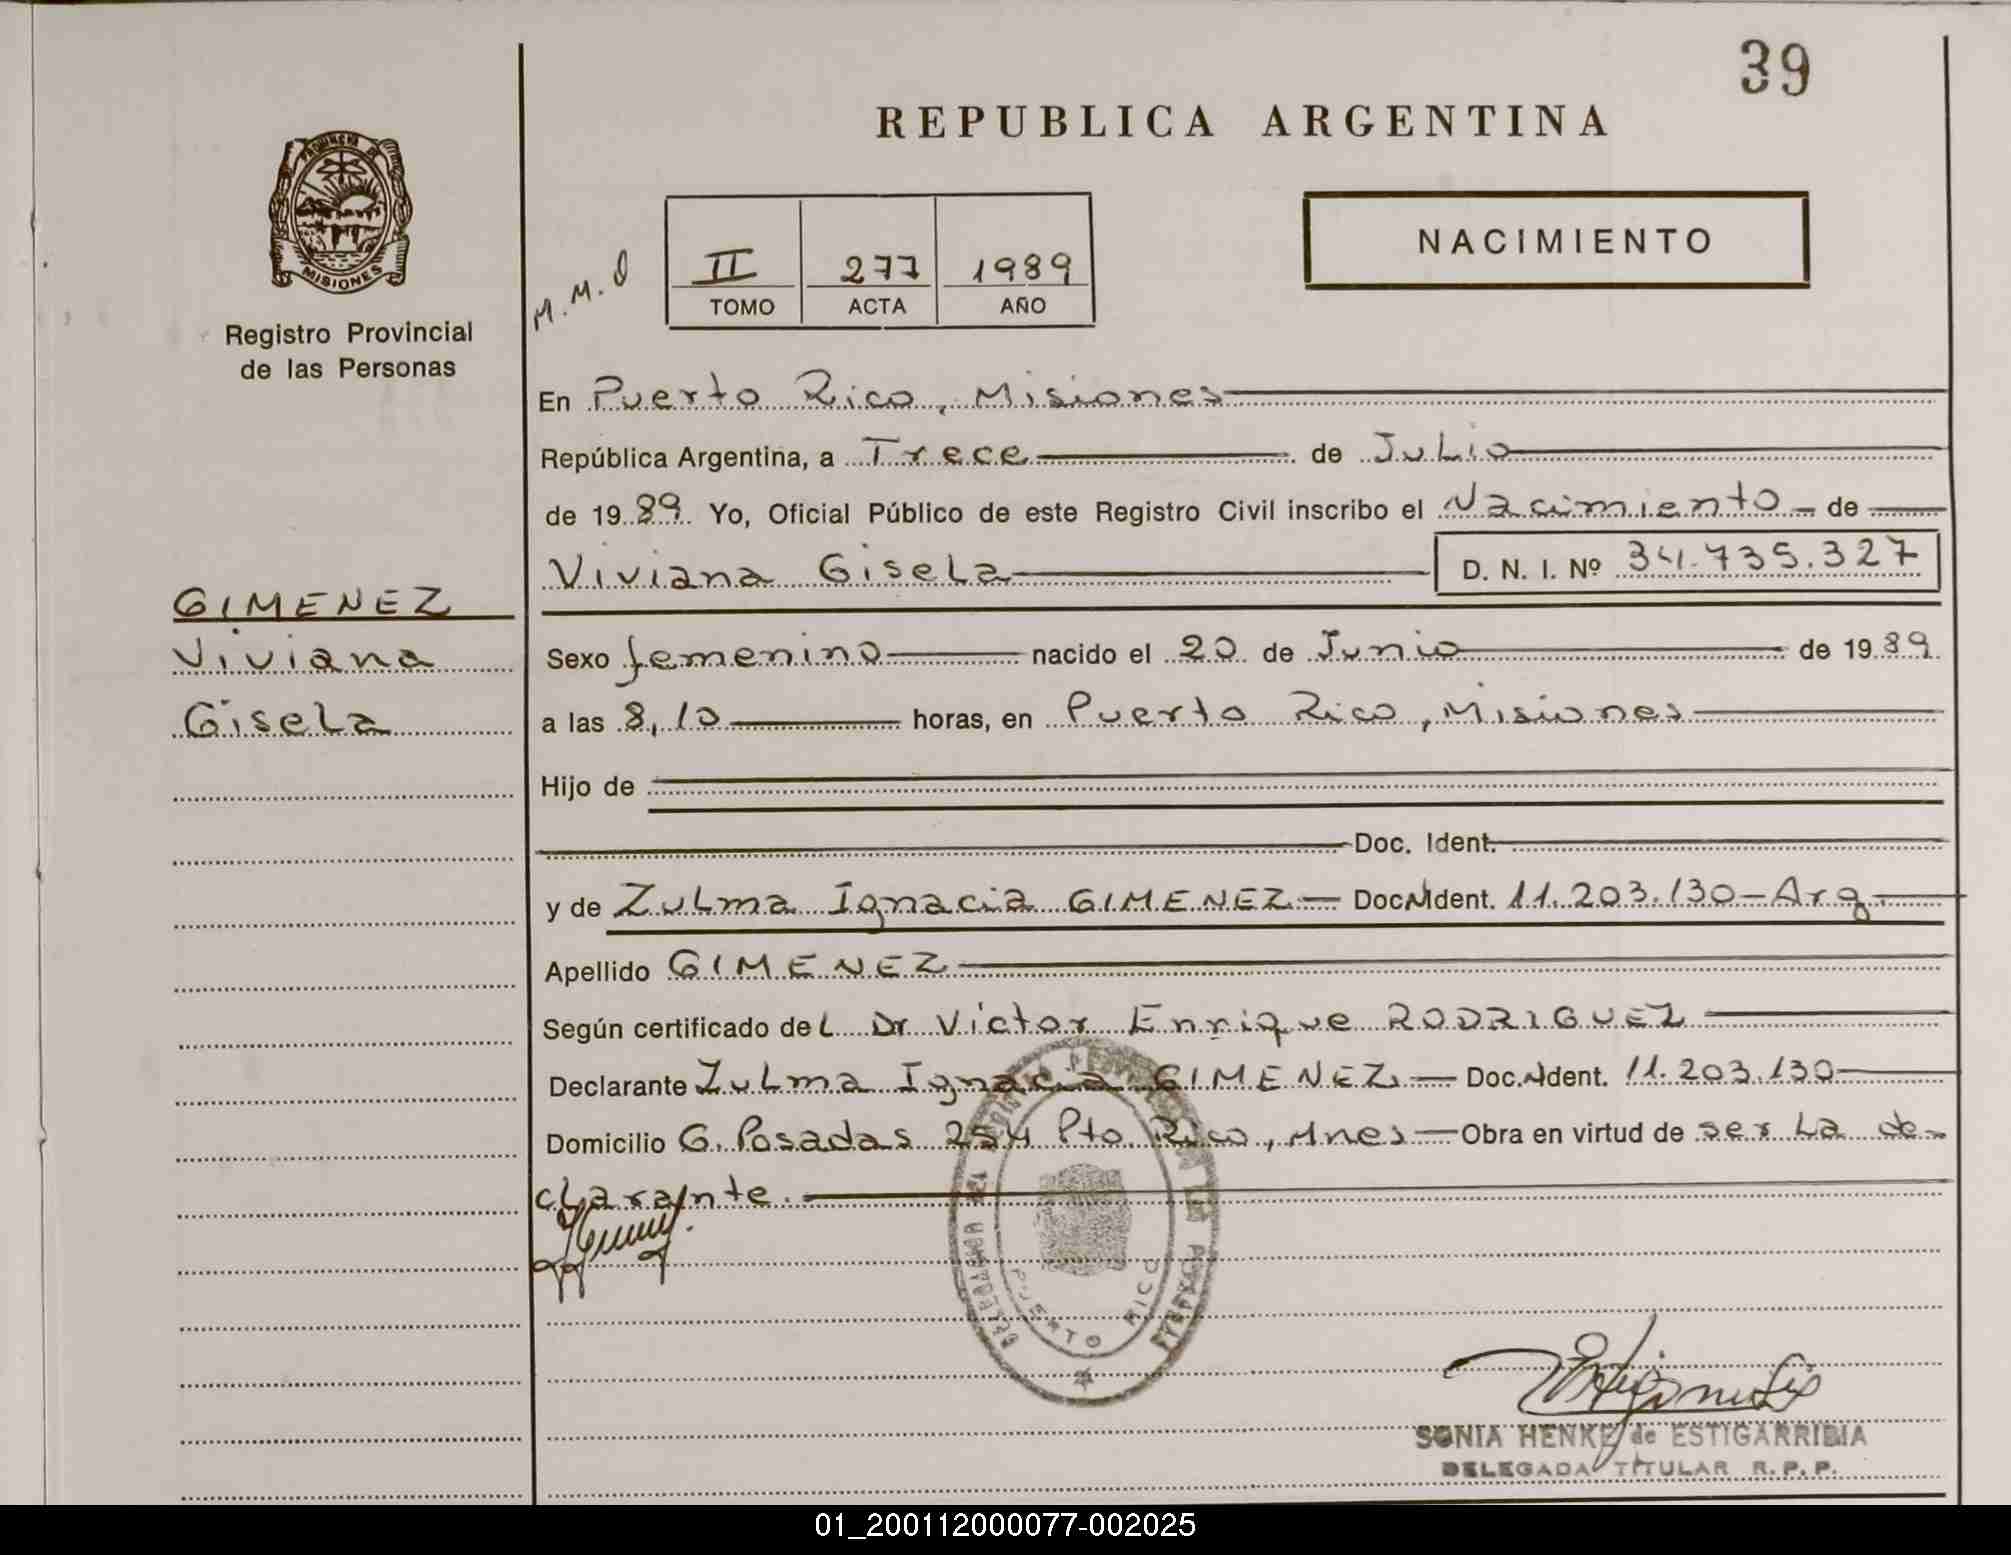 39
REPUBLICA ARGENTINA
PROVINCIA DE
MISIONES
Registro Provincial
de las Personas
NACIMIENTO
M.M.O
II 277 1989
TOMO ACTA AÑO
En Puerto Rico, Misiones
República Argentina, a Trece de Julio
de 1989. Yo, Oficial Público de este Registro Civil inscribo el Nacimiento de
Viviana Gisela D. N. I. Nº 34.735.327
GIMENEZ
Viviana
Gisela
Sexo femenino nacido el 20 de Junio de 1989
a las 8,10 horas, en Puerto Rico, Misiones
Hijo de
Doc. Ident.
y de Zulma Ignacia GIMENEZ Doc.N Ident. 11.203.130-Arg.
Apellido GIMENEZ
Según certificado del Dr Victor Enrique RODRIGUEZ
Declarante Zulma Ignacia GIMENEZ Doc.N Ident. 11.203.130
Domicilio G. Posadas 254 Pto Rico, Mnes Obra en virtud de ser La de-
clarante.
PUERTO RICO
SONIA HENKE de ESTIGARRIBIA
DELEGADA TITULAR R.P.P.
01_200112000077-002025